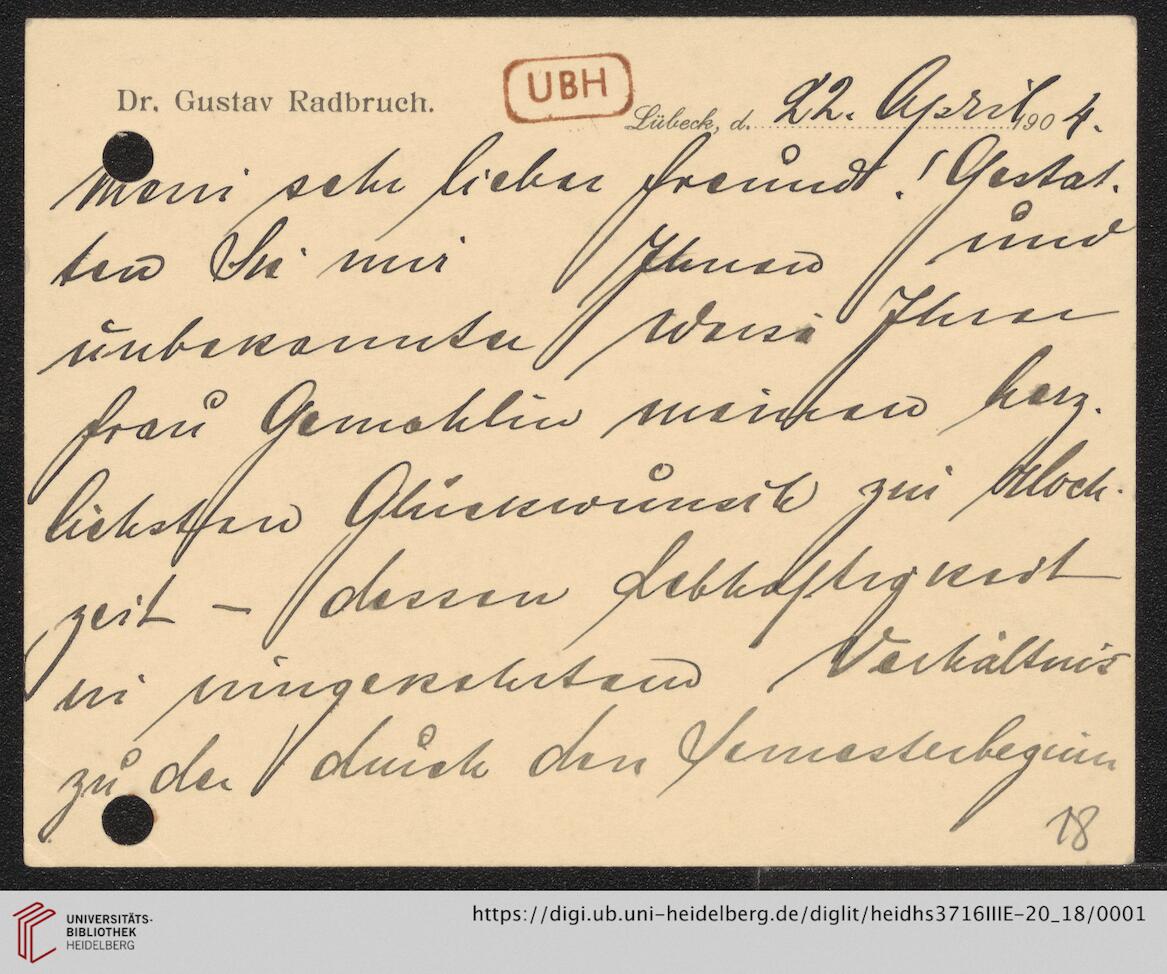 Dr. Gustav Radbruch.
UBH
Lübeck, d. 22. April 1904.
Mein sehr lieber Freund! Gestat-
ten Sie mir Ihnen und
unbekannter Weise Ihrer
Frau Gemahlin meinen herz-
lichsten Glückwunsch zur Hoch-
zeit – dessen Lebhaftigkeit
in umgekehrtem Verhältnis
zu der durch den Semesterbeginn
18
UNIVERSITÄTS-
BIBLIOTHEK
HEIDELBERG
https://digi.ub.uni-heidelberg.de/diglit/heidhs3716IIIE-20_18/0001